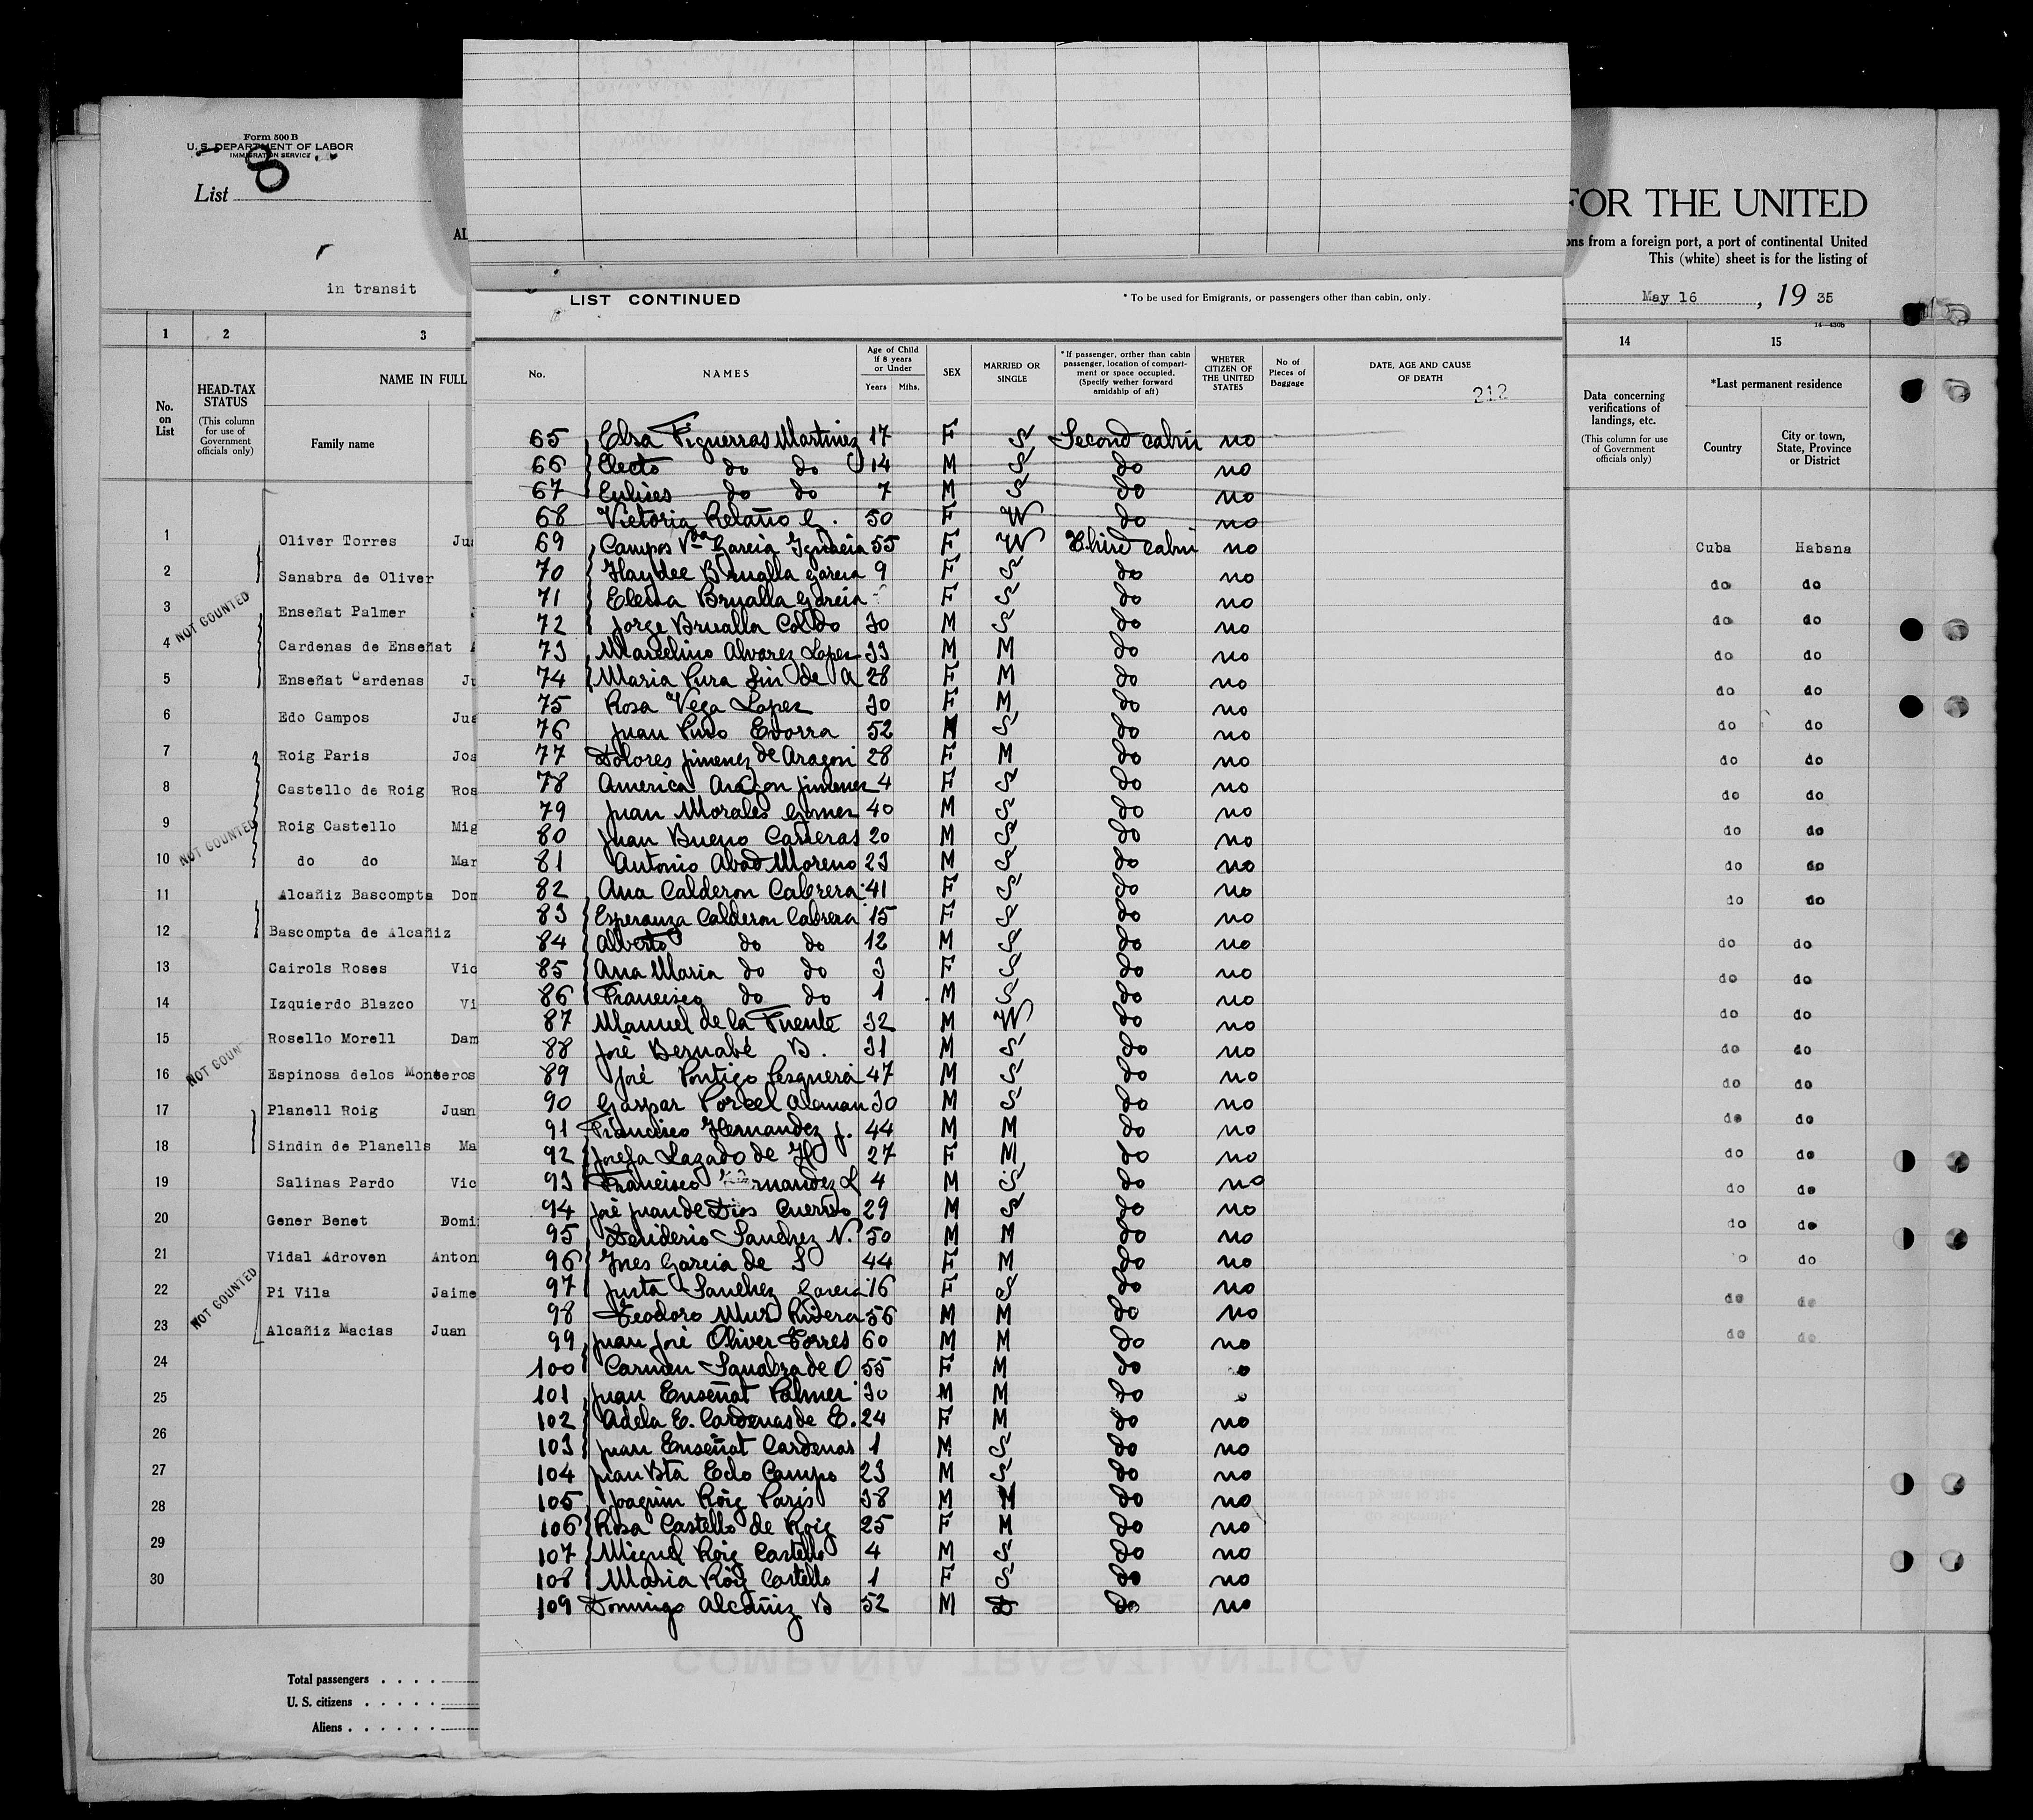 Form 500 B
U. S. DEPARTMENT OF LABOR
IMMIGRATION SERVICE
List 8
AL
in transit
FOR THE UNITED
ons from a foreign port, a port of continental United
This (white) sheet is for the listing of
May 16, 19 35
14—430b
1 2 3
No. on List
HEAD-TAX STATUS
(This column for use of Government officials only)
NAME IN FULL
Family name
14 15
Data concerning verifications of landings, etc.
(This column for use of Government officials only)
*Last permanent residence
Country
City or town, State, Province or District
1 Oliver Torres Jua Cuba Habana
2 Sanabra de Oliver do do
3 Enseñat Palmer do do
4 Cardenas de Enseñat do do
5 Enseñat Cardenas Ju do do
6 Edo Campos Jua do do
7 Roig Paris Joa do do
8 Castello de Roig Ros do do
9 Roig Castello Mig do do
10 do do Mar do do
11 Alcañiz Bascompta Dom do do
12 Bascompta de Alcañiz do do
13 Cairols Roses Vic do do
14 Izquierdo Blazco Vi do do
15 Rosello Morell Dam do do
16 Espinosa delos Monteros do do
17 Planell Roig Juan do do
18 Sindin de Planells Ma do do
19 Salinas Pardo Vic do do
20 Gener Benet Domi do do
21 Vidal Adroven Anton do do
22 Pi Vila Jaime do do
23 Alcañiz Macias Juan do do
24
25
26
27
28
29
30
NOT COUNTED
NOT COUNTED
NOT COUN
NOT COUNTED
Total passengers
U. S. citizens
Aliens
LIST CONTINUED
* To be used for Emigrants, or passengers other than cabin, only.
No.
NAMES
Age of Child if 8 years or Under
Years Mths.
SEX
MARRIED OR SINGLE
* If passenger, orther than cabin passenger, location of compartment or space occupied. (Specify wether forward amidship of aft)
WHETER CITIZEN OF THE UNITED STATES
No of Pieces of Baggage
DATE, AGE AND CAUSE OF DEATH
212
65 Elsa Figuerras Martinez 17 F S Second cabin no
66 Electo do do 14 M S do no
67 Eulises do do 7 M S do no
68 Victoria Relaño C. 50 F W do no
69 Campos Vda Garcia Ignacia 55 F W Third cabin no
70 Haydee Brualla Garcia 9 F S do no
71 Electa Brualla Garcia F S do no
72 Jorge Brualla Colldo 30 M S do no
73 Marcelino Alvarez Lopez 33 M M do no
74 Maria Pura Sin de A 28 F M do no
75 Rosa Vega Lopez 30 F M do no
76 Juan Puso Evorra 52 M S do no
77 Dolores Jimenez de Aragon 28 F M do no
78 America Aragon Jimenez 4 F S do no
79 Juan Morales Gomez 40 M S do no
80 Juan Bueno Carreras 20 M S do no
81 Antonio Abad Moreno 23 M S do no
82 Ana Calderon Cabrera 41 F S do no
83 Esperanza Calderon Cabrera 15 F S do no
84 Alberto do do 12 M S do no
85 Ana Maria do do 3 F S do no
86 Francisco do do 1 M S do no
87 Manuel de la Fuente 32 M W do no
88 José Bernabé B. 31 M S do no
89 José Pontigo Pesquera 47 M S do no
90 Gaspar Porcel Aleman 30 M S do no
91 Francisco Hernandez J. 44 M M do no
92 Josefa Lazado de H 27 F M do no
93 Francisco Hernandez L 4 M S do no
94 José Juan de Dios Cuerno 29 M S do no
95 Desiderio Sanchez N. 50 M M do no
96 Ynes Garcia de S 44 F M do no
97 Justa Sanchez Garcia 16 F S do no
98 Teodoro Mur Rivera 56 M M do no
99 Juan José Oliver Torres 60 M M do no
100 Carmen Sanabra de O 55 F M do o
101 Juan Enseñat Palmer 30 M M do o
102 Adela E. Cardenas de E. 24 F M do no
103 Juan Enseñat Cardenas 1 M S do no
104 Juan Bta Edo Campo 23 M S do no
105 Joaquin Roig Paris 38 M M do no
106 Rosa Castello de Roig 25 F M do no
107 Miguel Roig Castello 4 M S do no
108 Maria Roig Castello 1 F S do no
109 Domingo Alcañiz B 52 M do no
COMPAÑIA TRASATLANTICA